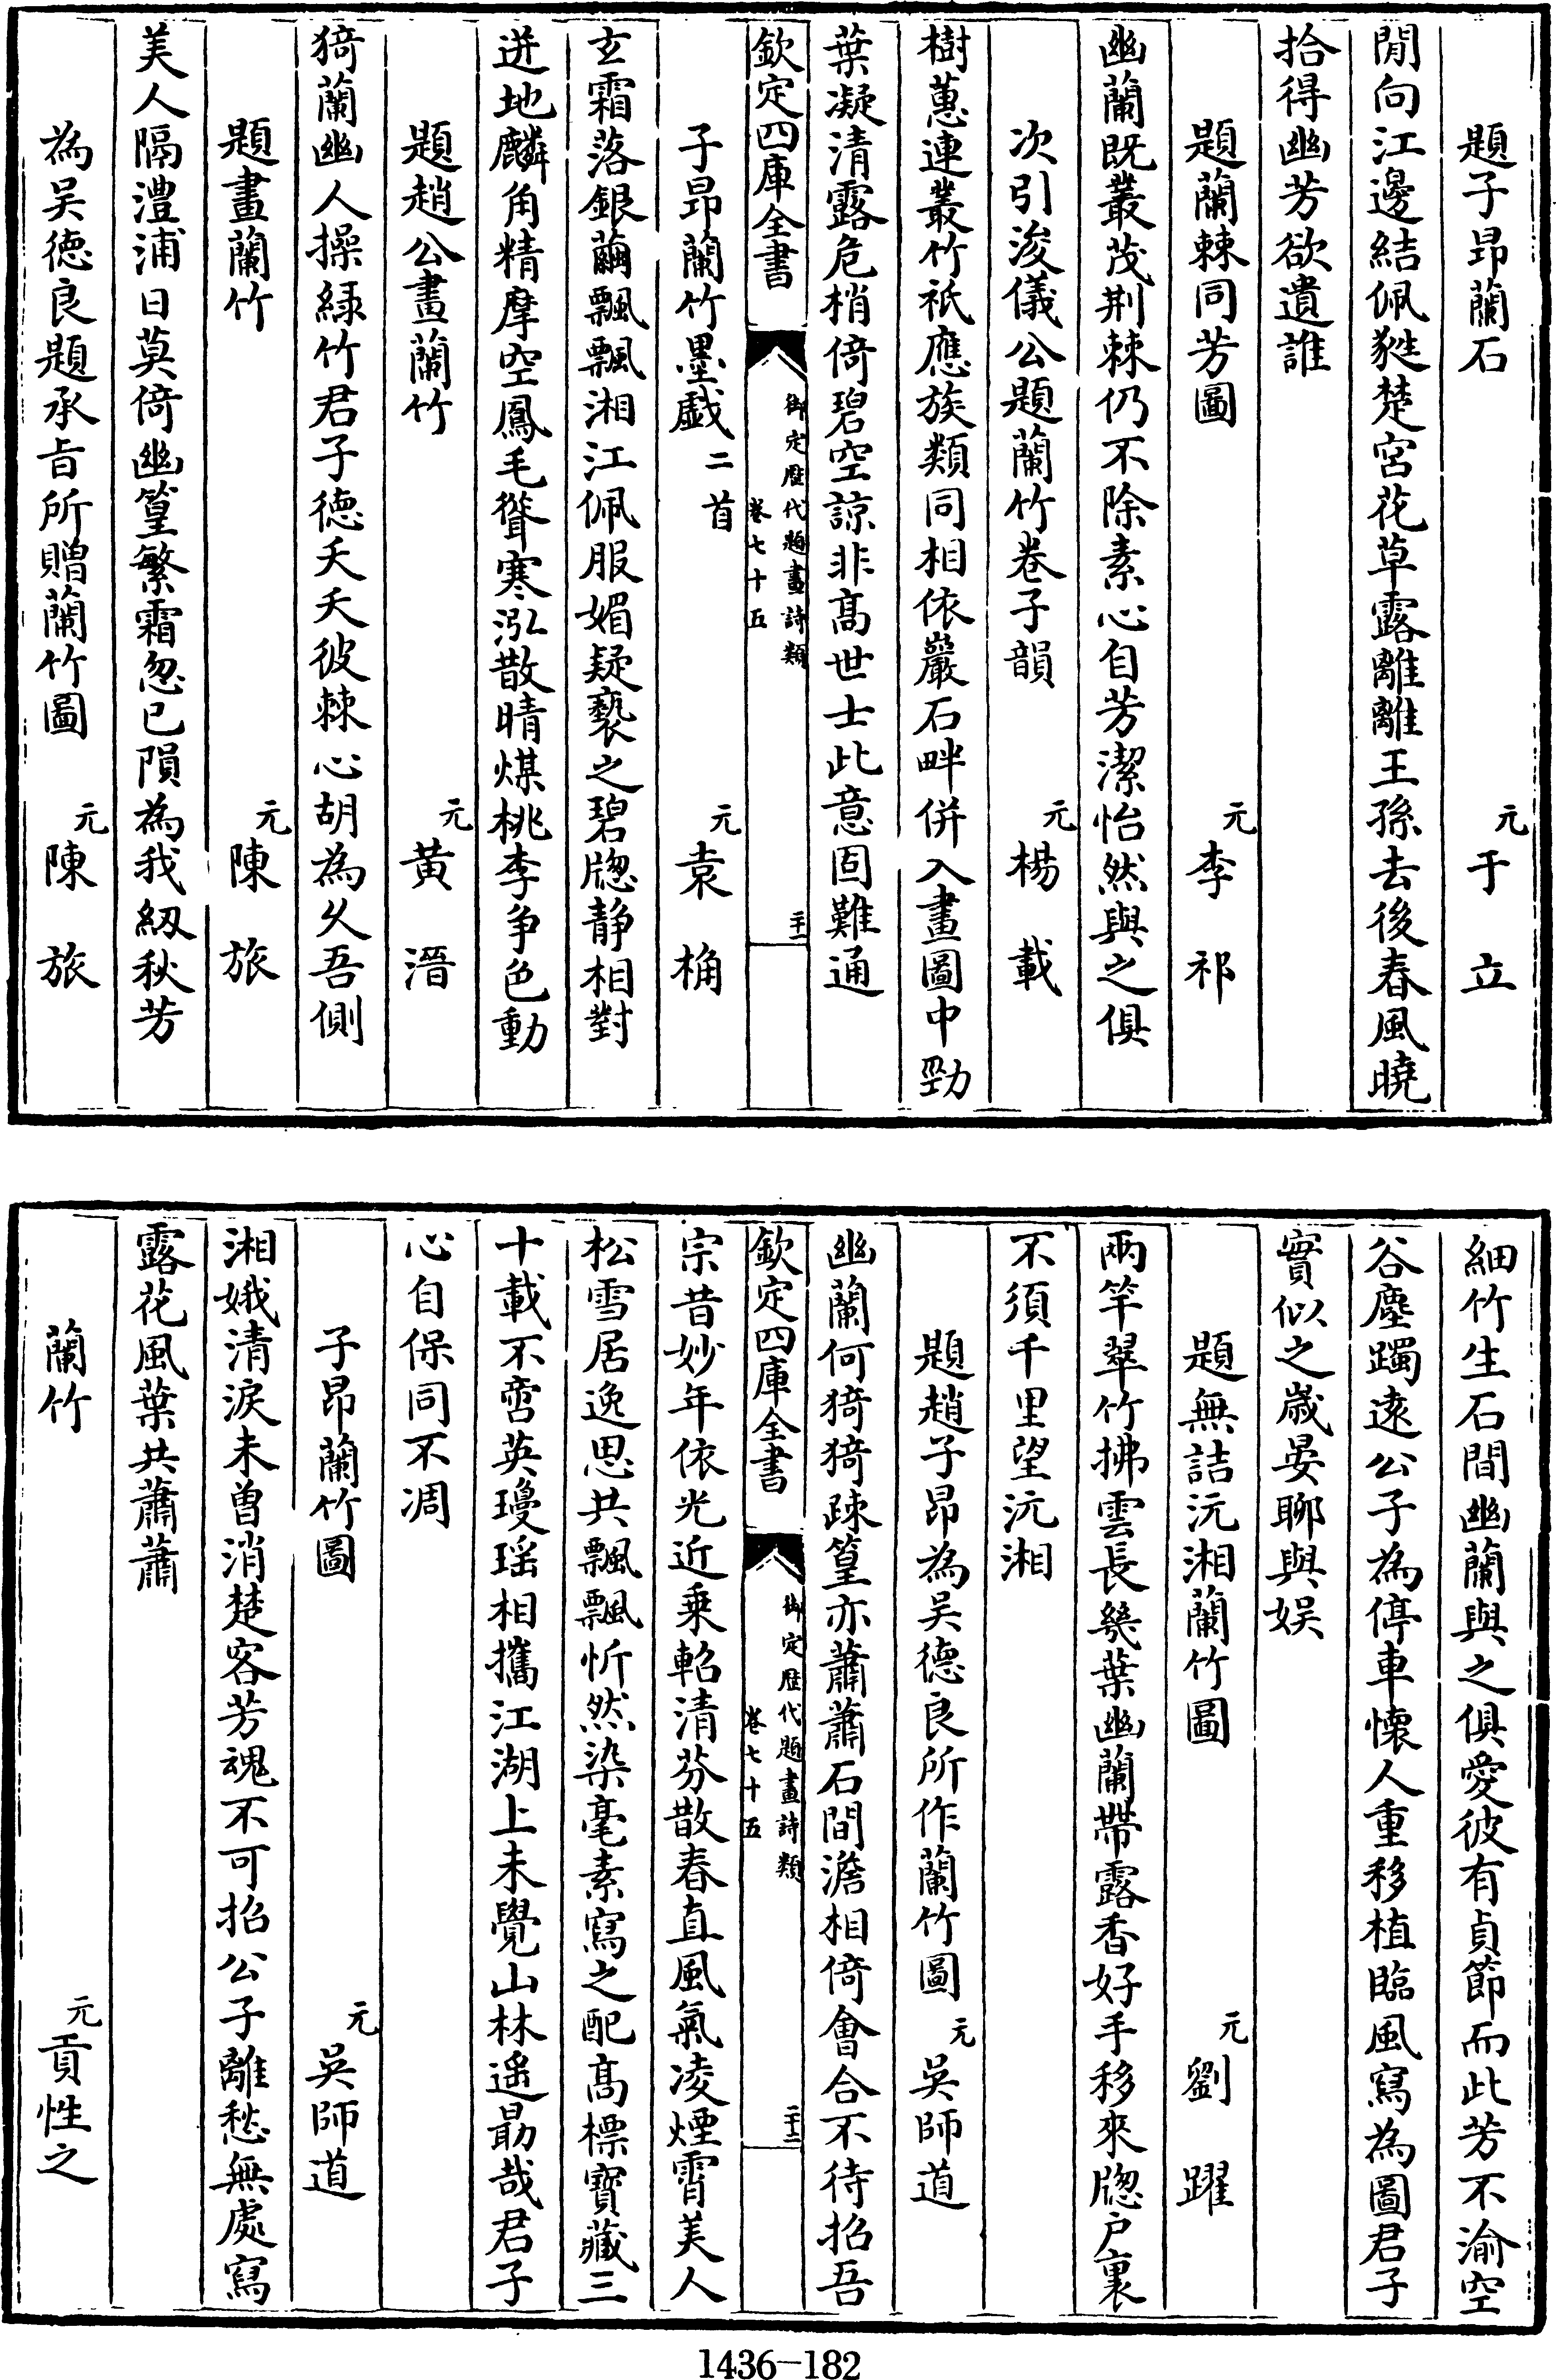 題子昂蘭石　元于立
閒向江邊結佩䍧楚宮花草露離離王孫去後春風曉
拾得幽芳欲遺誰
題蘭棘同芳圖　元李祁
幽蘭既叢茂荆棘仍不除素心自芳潔怡然與之俱
次引浚儀公題蘭竹卷子韻　元楊載
樹蕙連叢竹秖應族類同相依巖石畔併入畫圖中勁
葉凝清露危梢倚碧空諒非髙世士此意固難通
欽定四庫全書　御定歷代題畫詩類卷七十五　二十一
子昂蘭竹墨戯二首　元袁桷
玄霜落銀繭飄飄湘江佩服媚疑褻之碧牕静相對
迸地麟角精摩空鳳毛聳寒泓散晴煤桃李争色動
題趙公畫蘭竹　元黄溍
猗蘭幽人操緑竹君子德夭夭彼棘心胡為乆吾側
題畫蘭竹　元陳旅
美人隔澧浦日莫倚幽篁繁霜忽已隕為我紉秋芳
為吴德良題承旨所贈蘭竹圖　元陳旅
細竹生石間幽蘭與之俱愛彼有貞節而此芳不渝空
谷塵躅逺公子為停車懐人重移植臨風寫為圖君子
實似之歲晏聊與娱
題無詰沅湘蘭竹圖　元劉躍
兩竿翠竹拂雲長幾葉幽蘭帶露香好手移來牕户裏
不須千里望沅湘
題趙子昂為吴德良所作蘭竹圖　元吳師道
幽蘭何猗猗疎篁亦蕭蕭石間澹相倚會合不待招吾
欽定四庫全書　御定歷代題畫詩類卷七十五　二十二
宗昔妙年依光近乗軺清芬散春直風氣凌煙霄美人
松雪居逸思共飄飄忻然染毫素寫之配髙標寳藏三
十載不啻英瓊瑶相攜江湖上未覺山林遥朂哉君子
心自保同不凋
子昂蘭竹圖　元吳師道
湘娥清淚未曽消楚客芳魂不可招公子離愁無處寫
露花風葉共蕭蕭
蘭竹　元貢性之
1436-182